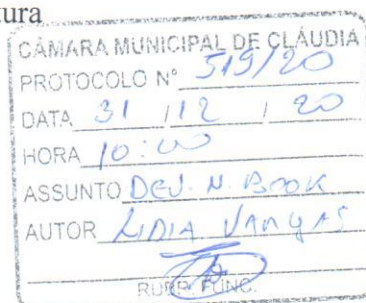 tura
CÂMARA MUNICIPAL DE CLÁUDIA
PROTOCOLO Nº 519/20
DATA 31 / 12 / 20
HORA 10:00
ASSUNTO DEV. N. BOOK
AUTOR LIDIA VARGAS
RUBR. FUNC.